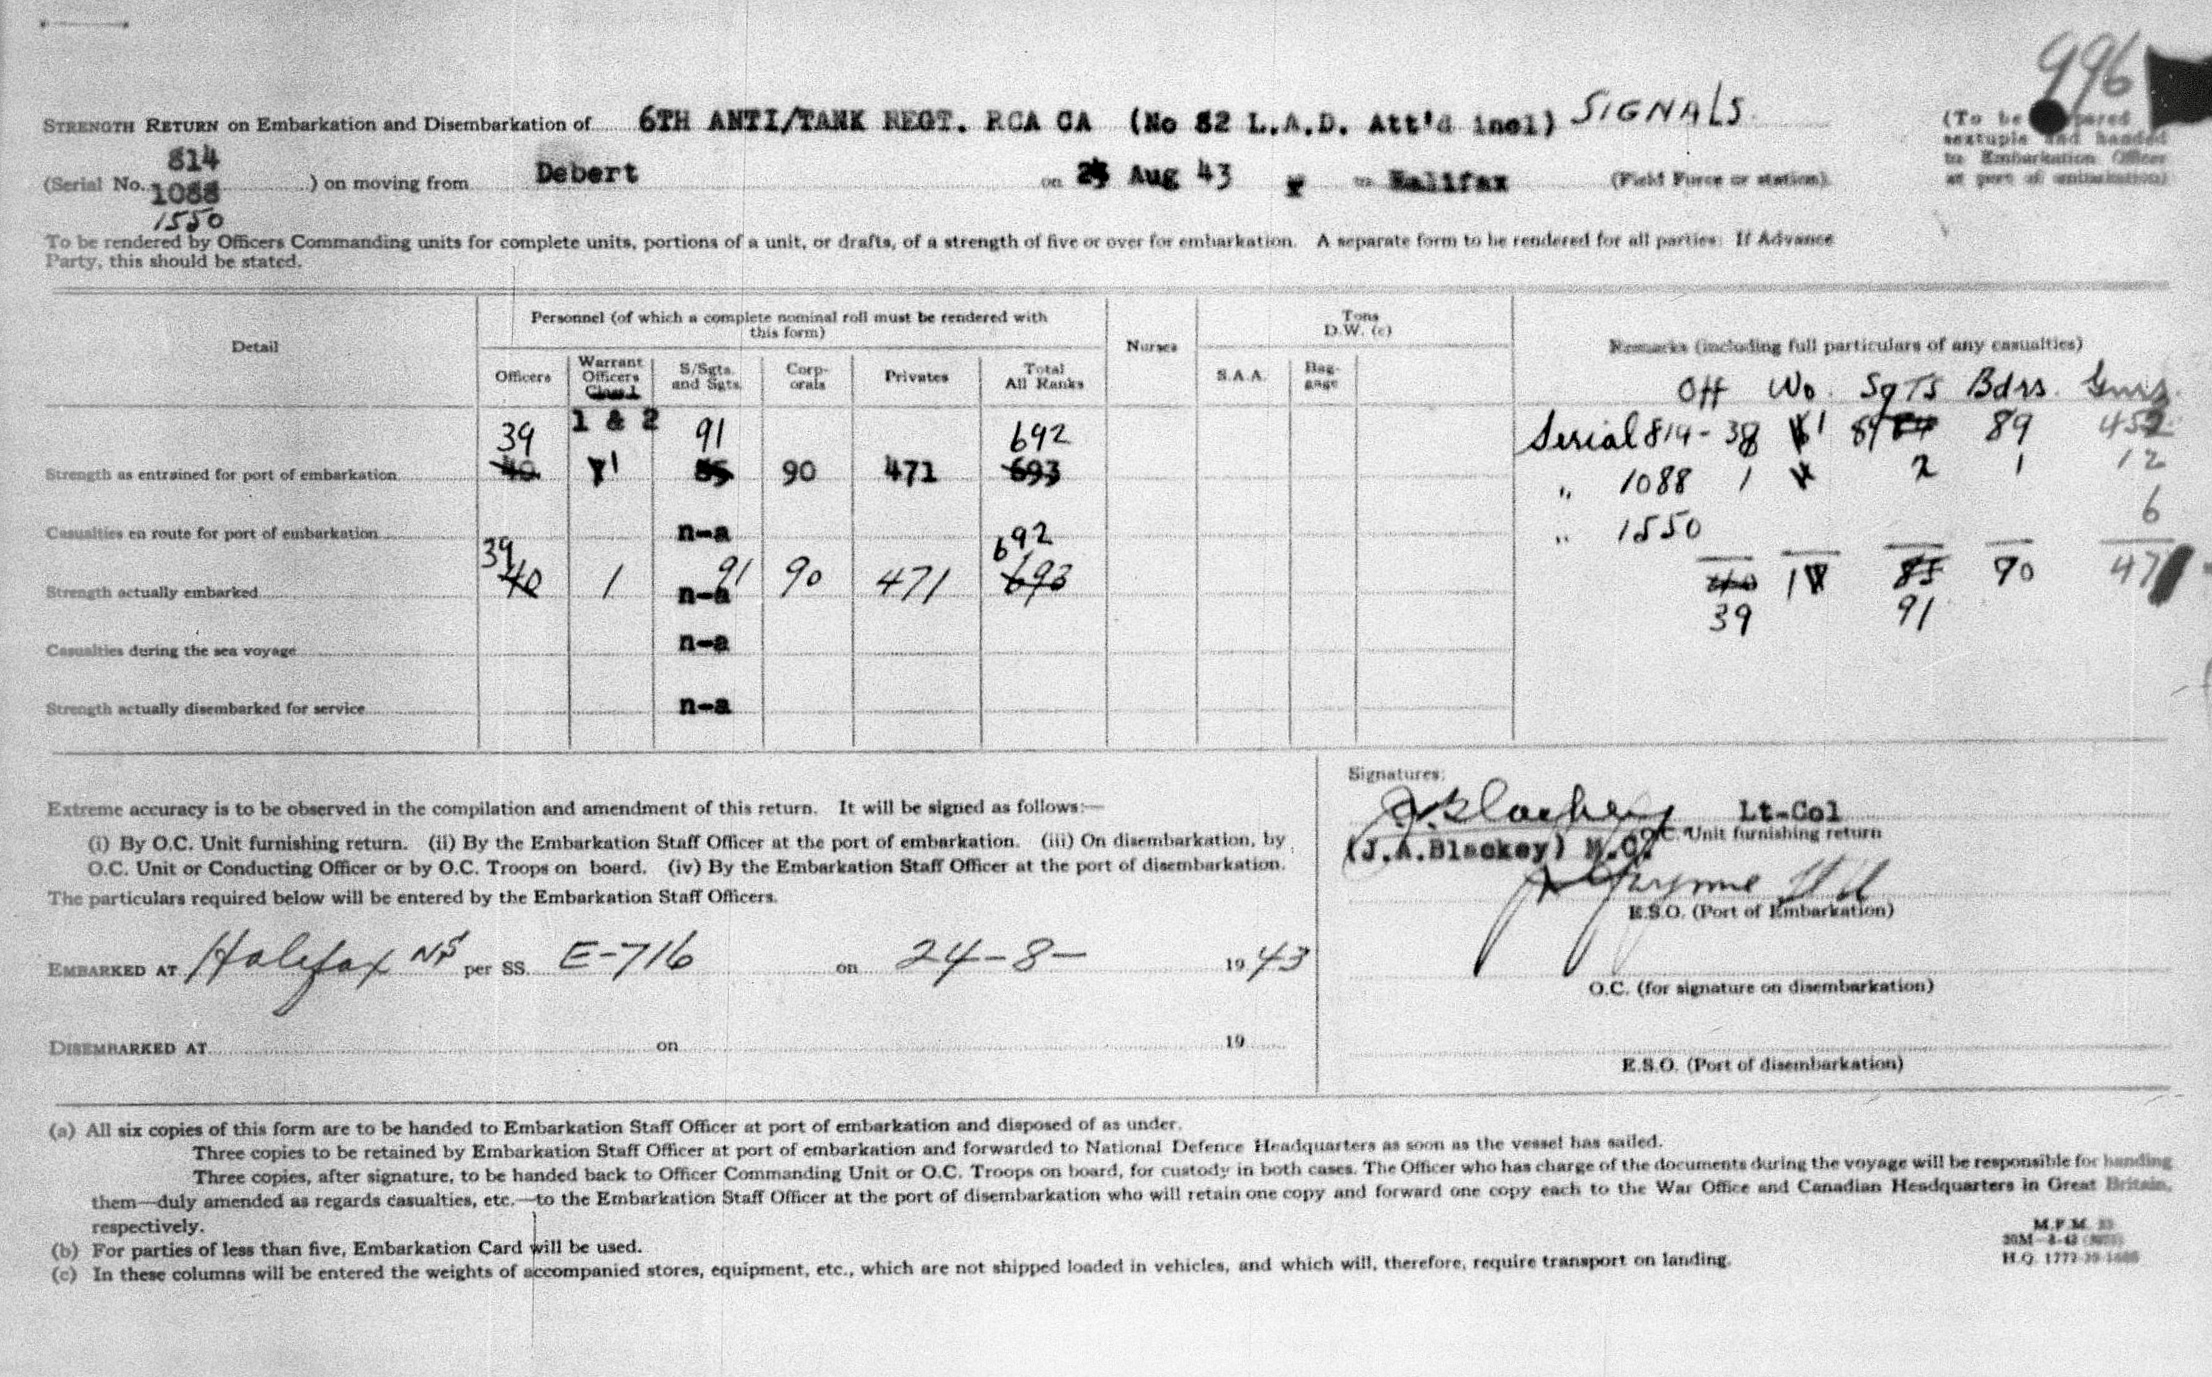 996
STRENGTH RETURN on Embarkation and Disembarkation of 6TH ANTI/TANK REGT. RCA CA (No 82 L.A.D. Att'd incl) SIGNALS
(To be prepared
sextuple and handed
to Embarkation Officer
at port of embarkation)
814
(Serial No. 1088 ) on moving from Debert on Aug 43 to Halifax (Field Force or station).
1550
To be rendered by Officers Commanding units for complete units, portions of a unit, or drafts, of a strength of five or over for embarkation. A separate form to be rendered for all parties. If Advance
Party, this should be stated.
Detail
Personnel (of which a complete nominal roll must be rendered with
this form)
Nurses
Tons
D.W. (c)
Remarks (including full particulars of any casualties)
Officers
Warrant
Officers
Class 1
1 & 2
S/Sgts.
and Sgts.
Corp-
orals
Privates
Total
All Ranks
S.A.A.
Bag-
gage
Off Wo Sgts Bdrs Gnrs.
39 91 692
Serial 814 - 38 1 89 89 452
Strength as entrained for port of embarkation 40 1 85 90 471 693
" 1088 1 2 1 12
Casualties en route for port of embarkation n-a
" 1550 6
39 692
Strength actually embarked 40 1 91 n-a 90 471 693
40 1 85 90 471
39 91
Casualties during the sea voyage n-a
Strength actually disembarked for service n-a
Signatures:
Extreme accuracy is to be observed in the compilation and amendment of this return. It will be signed as follows:—
J.A. Blackey Lt-Col
O.C. Unit furnishing return
(i) By O.C. Unit furnishing return. (ii) By the Embarkation Staff Officer at the port of embarkation. (iii) On disembarkation, by
(J.A.Blackey) M.C.
O.C. Unit or Conducting Officer or by O.C. Troops on board. (iv) By the Embarkation Staff Officer at the port of disembarkation.
The particulars required below will be entered by the Embarkation Staff Officers.
E.S.O. (Port of Embarkation)
EMBARKED AT Halifax NS per SS. E-716 on 24-8- 1943
O.C. (for signature on disembarkation)
DISEMBARKED AT on 19
E.S.O. (Port of disembarkation)
(a) All six copies of this form are to be handed to Embarkation Staff Officer at port of embarkation and disposed of as under.
Three copies to be retained by Embarkation Staff Officer at port of embarkation and forwarded to National Defence Headquarters as soon as the vessel has sailed.
Three copies, after signature, to be handed back to Officer Commanding Unit or O.C. Troops on board, for custody in both cases. The Officer who has charge of the documents during the voyage will be responsible for handing
them—duly amended as regards casualties, etc.—to the Embarkation Staff Officer at the port of disembarkation who will retain one copy and forward one copy each to the War Office and Canadian Headquarters in Great Britain,
respectively.
(b) For parties of less than five, Embarkation Card will be used.
(c) In these columns will be entered the weights of accompanied stores, equipment, etc., which are not shipped loaded in vehicles, and which will, therefore, require transport on landing.
M.F.M.
H.Q. 1772